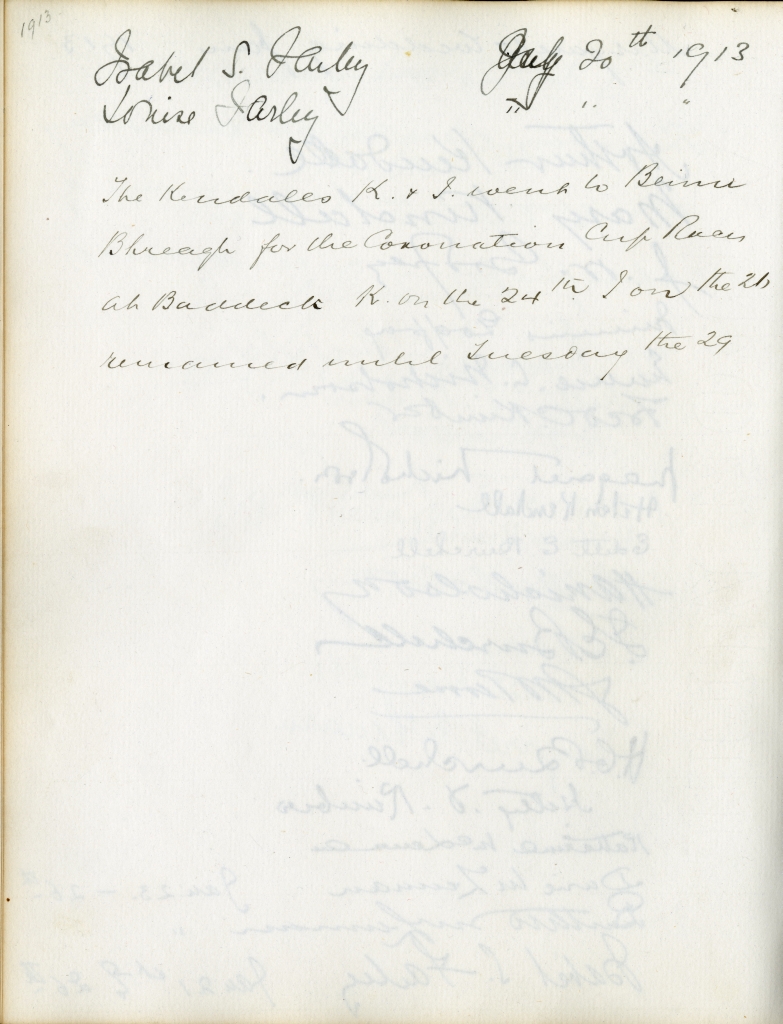 1913
Isabel S. Farley July 20th 1913
Louise Farley " " "
The Kendalls K. & I. went to Beinn
Bhreagh for the Coronation Cup Races
at Baddeck K. on the 24th I on the 26
remained until Tuesday the 29